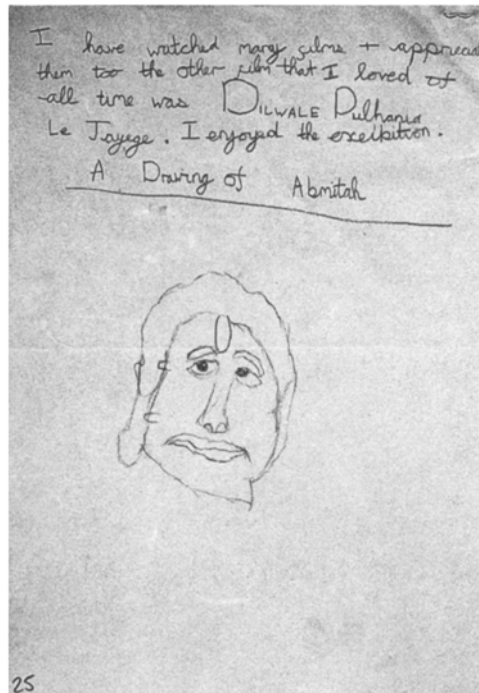 I have watched many films + appreciate
them too the other film that I loved of
all time was DILWALE Dulhania
Le Jayege. I enjoyed the exeibition.
A Drawing of Abmitah
25